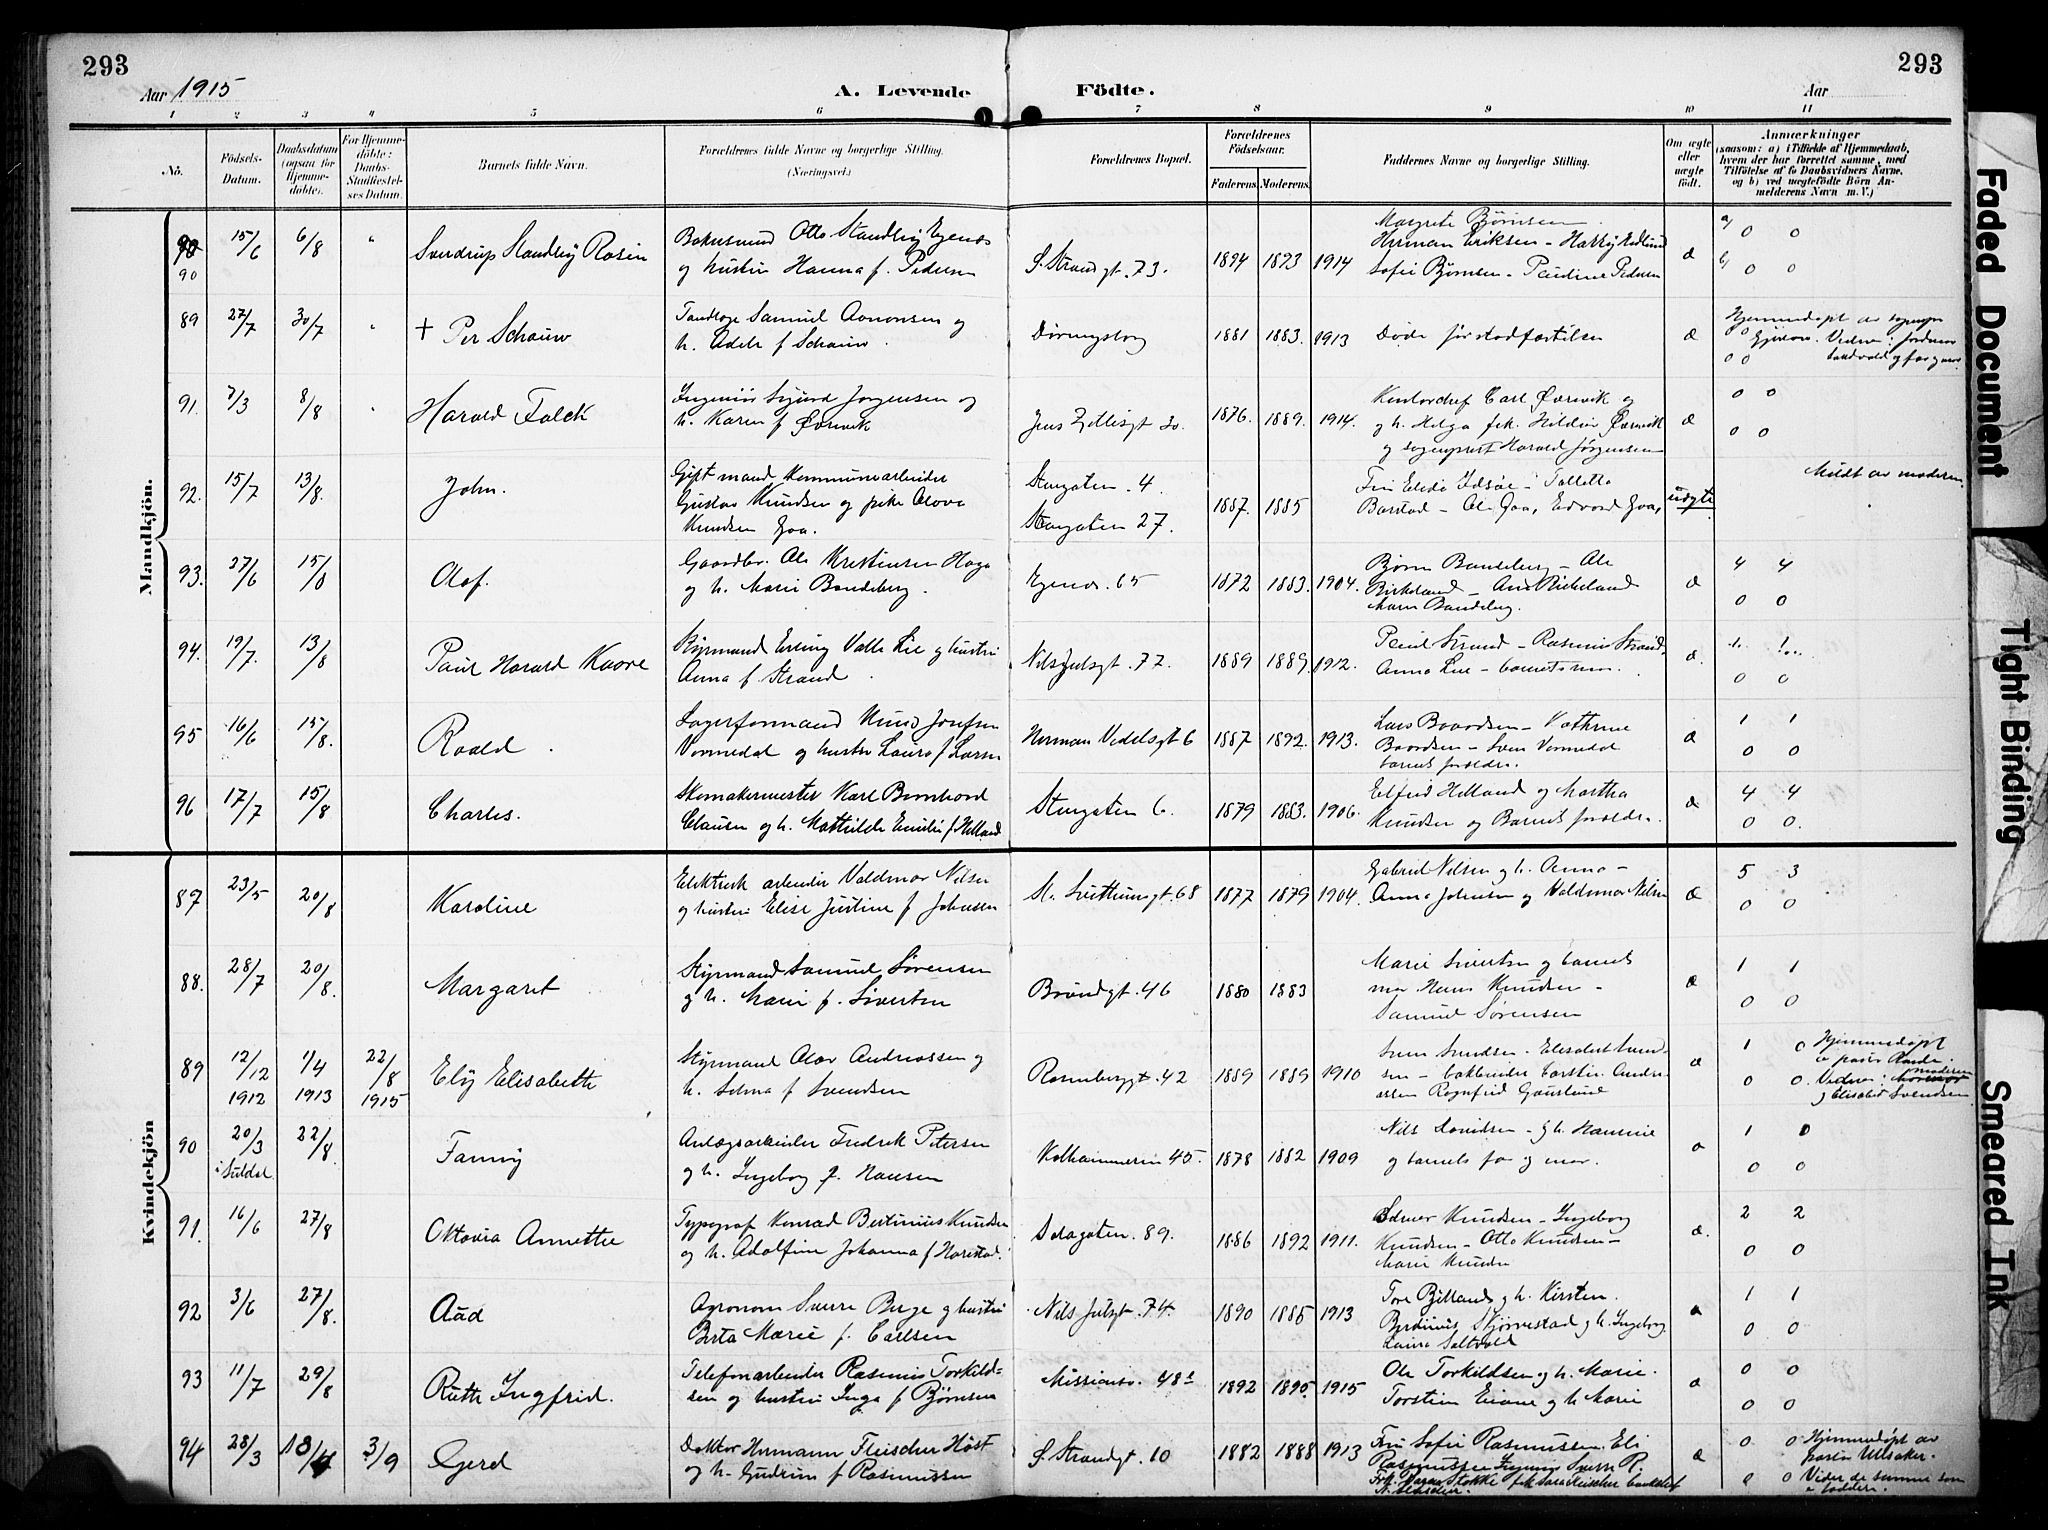 293
293
Aar 1915
A. Levende
Födte.
Aar
1 2 3 4 5 6 7 8 9 10 11
No.
Födsels-Datum.
Daabsdatum (ogsaa for Hjemmedöbte).
For Hjemmedöbte: Daabs-Stadfæstelses Datum.
Barnets fulde Navn.
Forældrenes fulde Navne og borgerlige Stilling. (Næringsvei.)
Forældrenes Bopæl.
Forældrenes Födselsaar.
Faderens. Moderens.
Faddernes Navne og borgerlige Stilling.
Om ægte eller uægte födt.
Anmærkninger
(saasom: a) i Tilfælde af Hjemmedaab,
hvem der har forrettet samme, med
Tilföielse af to Daabsvidners Navne,
og b) ved uægtefödte Börn An-
melderens Navn m. V.)
Mandkjön.
90 15/6 6/8 Sverdrup Standley Rosin
og hustru Hanna f. Pedersen
S. Strandgt. 73. 1894 1893 1914
Margrete Bjørnsen
Herman Eriksen - Harry Edlund
Sofie Bjørnsen - Pauline Pedersen
æ
a/ 0 0
b/ 0 0
89 27/7 30/7 + Per Schauw
Tandlæge Samuel Aanonsen og
h. Adele f Schauw.
1881 1883. 1913
Døde før stadfæstelsen
æ
0 0
91. 7/3 8/8 Harald Falck
Ingeniør Sigurd Jørgensen og
h. Karen f Øørwik
1876. 1889. 1914.
Kontorchef Carl
og sogneprest Harald Jørgensen
æ
0 0
0 0
92. 15/7 13/8. John.
Gift mand Kommunearbeider
Gustav Knudsen og pike Olava
Knudsen Goa.
Storgaten. 4.
Storgaten 27.
1887. 1885
uægte
Meldt av moderen.
93. 27/6 15/8 Olaf.
Gaardbr. Ole Kristiansen Haga
og h. Marie Bandeberg.
Egenes. 65 1872 1883. 1904.
Birkeland
æ
4 4
0 0
94. 19/7. 13/8 Paul Harald Kaare
Styrmand Erling Valle Lie og hustru
Anna f. Strand
Nils Juelsgt. 77. 1889 1889. 1912.
Paul Strand - Rasmus Strand.
Anna Lie - barnets mor.
æ.
1 1
0 0
95 16/6 15/8. Roald.
Lagerformand Knud Josefsen
Vormedal og hustru Laura f Larsen
Herman Vedelsgt 6 1887 1892. 1913.
Lars Baardsen - Kathrine
Baardsen - Sven Vormedal
barnets foreldre.
æ
1 1
0 0
96 17/7 15/8 Charles.
Skomakermester Karl Bernhard
Clausen og h. Mathilde Emilie f. Helland
Storgaten 6. 1879 1883. 1906.
Elfrid Helland og Martha
Knudsen og Barnets foreldre.
æ
4 4
0 0.
Kvindekjön
87 23/5 20/8 Karoline
Elektrisk arbeider Valdmar Nilsen
og hustru Elise Justine f Johnsen
68 1877 1879 1904.
Gabriel Nilsen og h. Anna -
Anna Johnsen og Valdemar Nilsen
æ
5 3
0 0
88. 28/7 20/8. Margaret
Styrmand Samuel Sørensen
og h. Marie f. Sivertsen
Brøndgt. 46 1880 1883
Marie Sivertsen og barnets
mor Hans Knudsen -
Samuel Sørensen
æ
1 1
0 0
89 12/12 1912 1/4 1913 22/8 1915 Elly Elisabeth
Styrmand Olav Andreassen og
h. Selma f Svendsen
Rosenberggt. 42 1889 1889 1910
Sven Svendsen - Elisabet Svend-
sen - Torstein Andre-
assen Ragnfrid Gausland
æ
1 0
0 0.
Hjemmedøpt
Vidner: moderen
og Elisabet Svendsen
90 20/3 i Suldal 22/8 Fanny
Anlægsarbeider Fredrik Petersen
og h. Ingeborg f. Hansen
Kolhammeren 45. 1878 1882 1909
Nils Davidsen - og h. Hansine
og barnets far og mor.
æ
1 0
0 0
91. 16/6 27/8 Oktavia Annette
Typograf Konrad Bertinius Knudsen
og h. Adolfine Johanna f Harestad.
Dolagaten. 89. 1886 1892 1911.
Selmer Knudsen - Ingeborg
Knudsen - Otto Knudsen -
Marie Knudsen
æ.
2 2
0 0
92 3/6 27/8. Aud
Agronom Sverre Berge og hustru
Berta Marie f. Carlsen
Nils Julsgt. 74. 1890 1885 1913
Tore Bjelland og h. Kirsten.
og h. Ingeborg
Laura
æ
1 1
0 0
93 11/7 29/8 Ruth Ingfrid.
Telefonarbeider Rasmus Torkild-
sen og hustru Inga f Bjørnsen
Missionsv. 48 1892 1895. 1915
Ole Torkildsen og h. Marie.
Torstein Eiane og h Marie
æ
0 0
0 0
94 28/3 18/4 3/9 Gerd
Doktor Hermann Fleischer Høst
og h. Gudrun f Rasmussen
S. Strandgt. 10 1882 1888 1913
Fru Sofie Rasmussen. Eli
Rasmussen Ingeniør Sverre R.
æ
0 0
0 0
Hjemmedøpt av
pastor Ullsaker.
Vidner de samme som
faddere.
Faded Document
Tight Binding
Smeared Ink